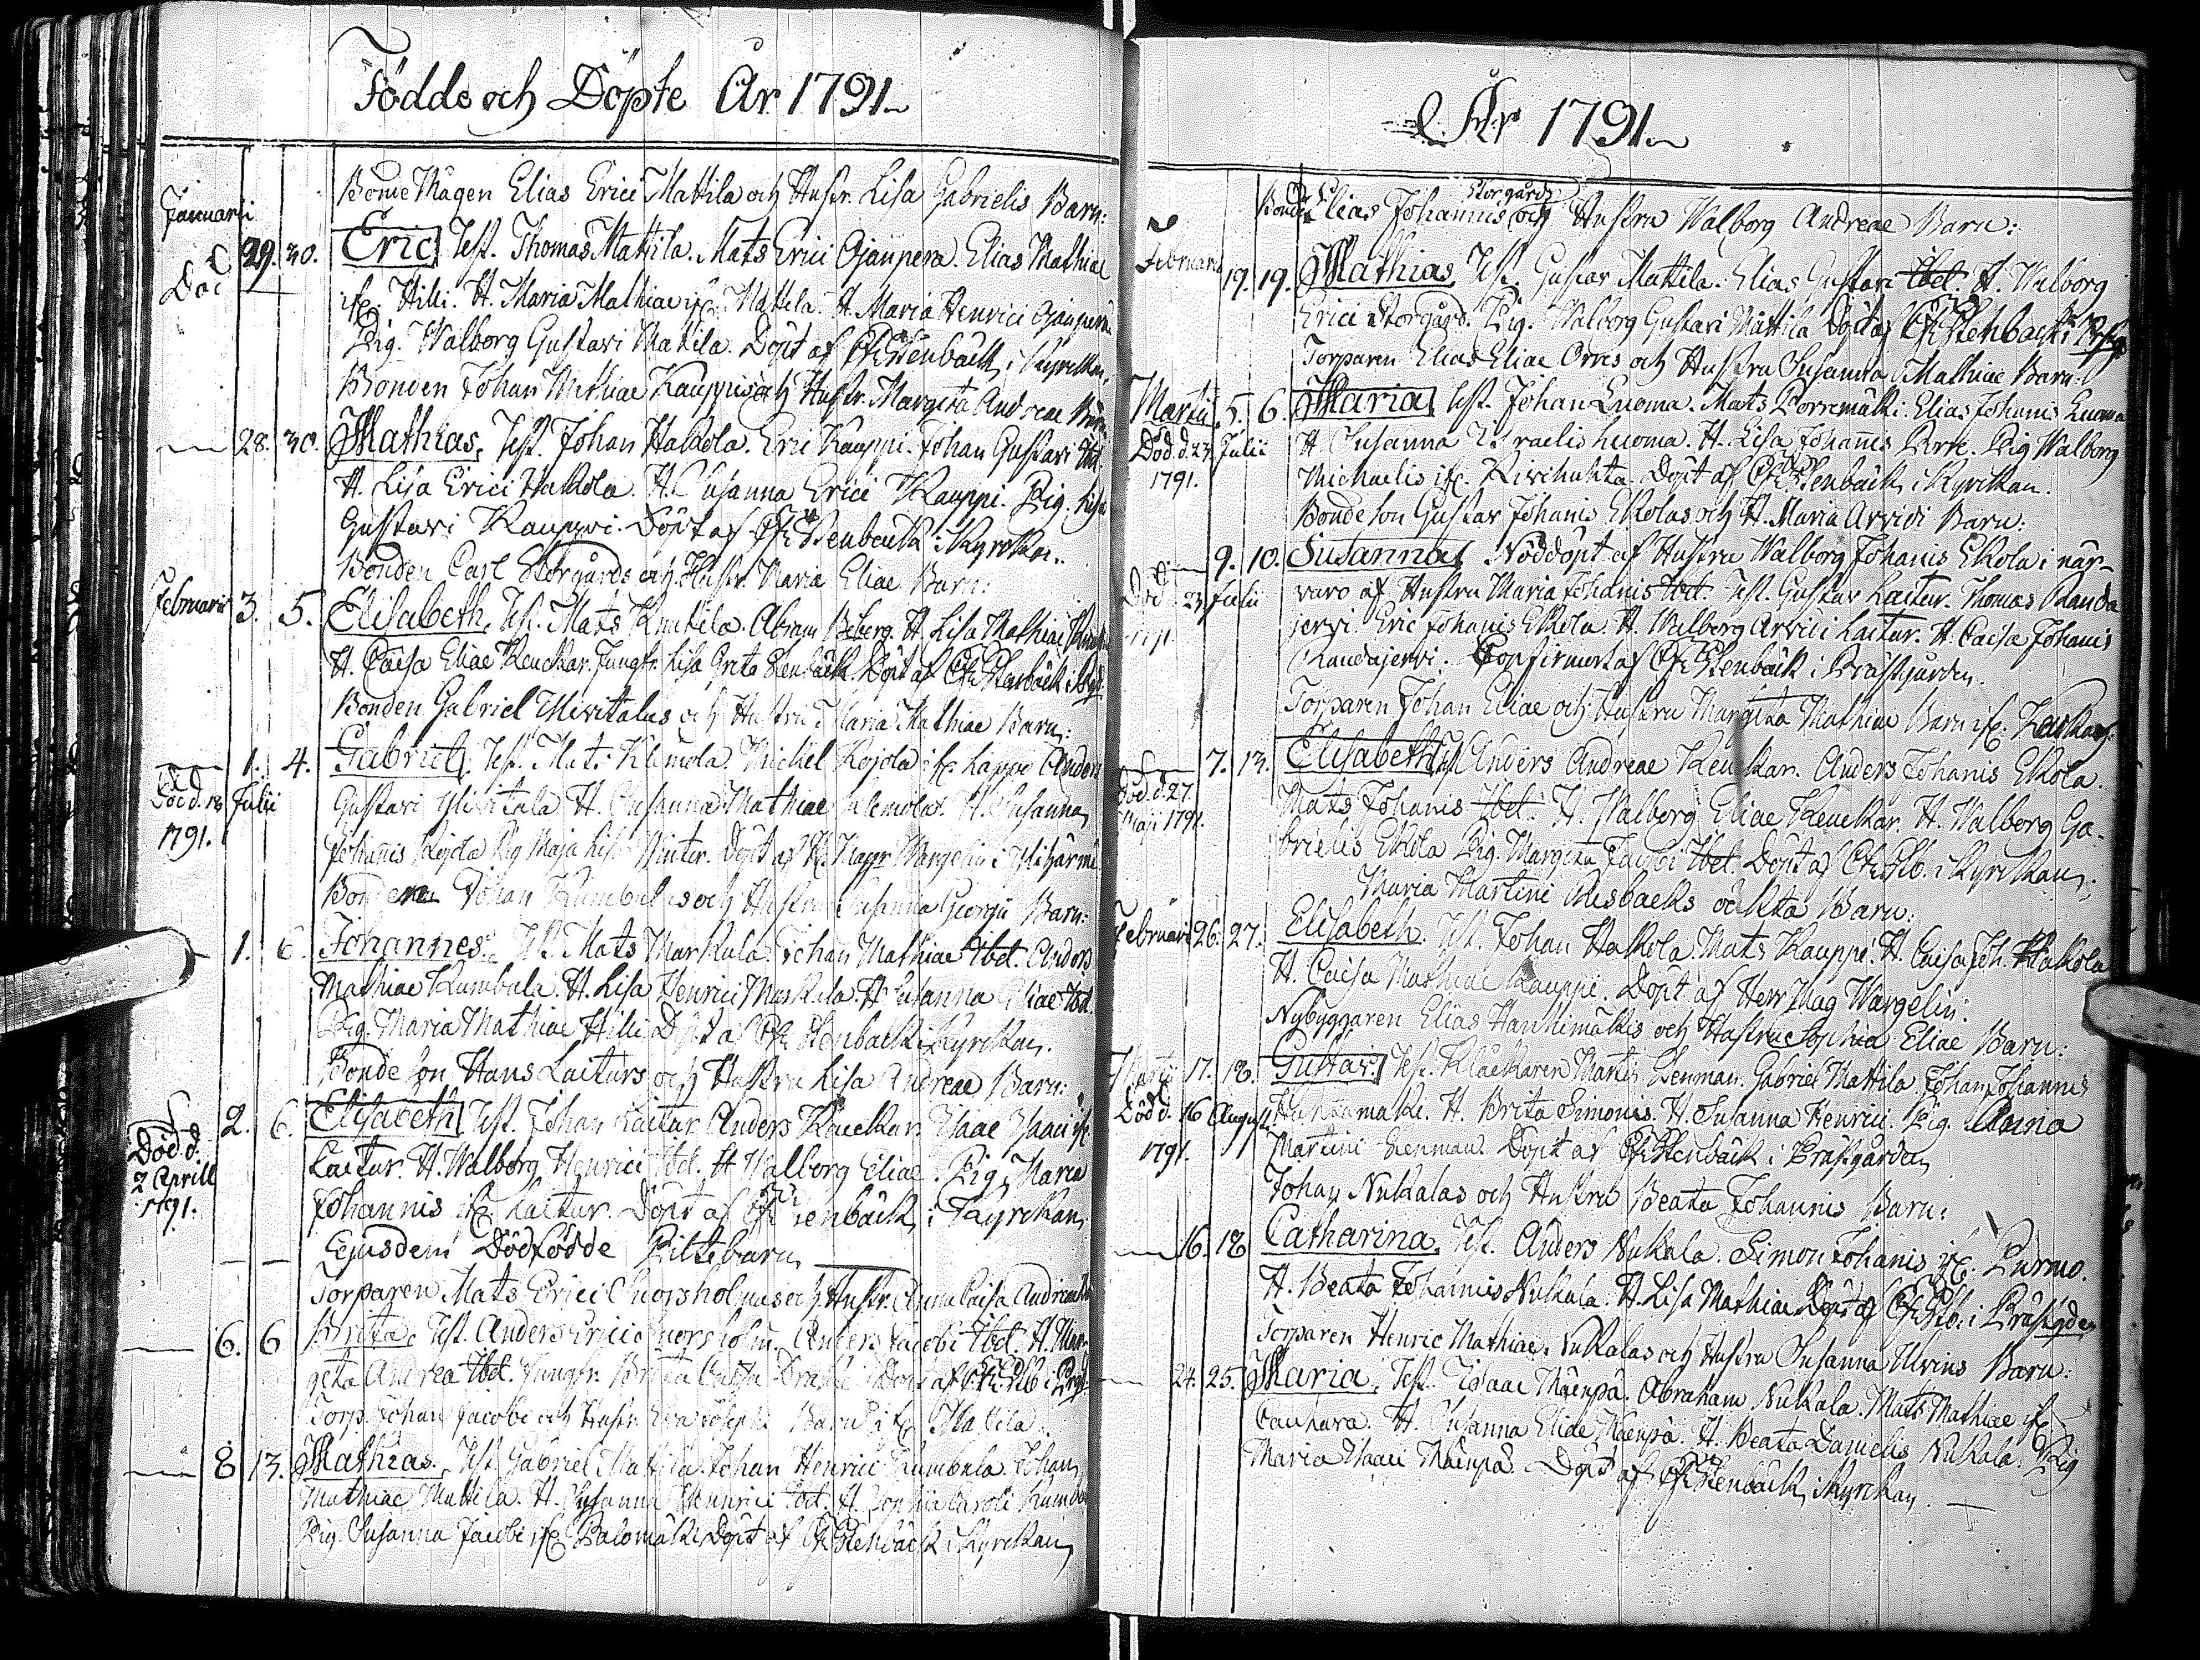 Födde och Döpte År 1791.
Januarii
BondeMågen Elias Erici Mattila och Hustr. Lisa Gabrielis Barn:
29. 30. Eric, Test. Thomas Mattila. Mats Erici Ojanpera. Elias Mathiae
Död
ifr. Hilli. H. Maria Mathiae ifr. Mattila. H. Maria Henrici Ojanpera
Pig. Walborg Gustavi Mattila. Döpt af Stenbäck, i Kyrckan.
Bonden Johan Mathiae Kauppis och Hustr. Margeta Andreae Barn
28. 30. Mathias, Test. Johan Hakola. Eric Kauppi. Johan Gustavi Ibd.
H. Lisa Erici Hakola. H. Susanna Erici Kauppi. Pig. Lisa
Gustavi Kauppi. Döpt af Stenbäck i Kyrckan.
Bonden Carl Storgårds och Hustr. Maria Eliae Barn:
Februarii 3. 5. Elisabeth, Test. Mats Knutila. Abram Biberg. H. Lisa Mathiae
H. Caisa Eliae Keuckar. Jungfr. Lisa Greta Stenbäck Döpt af Stenbäck i
Bonden Gabriel Ylivitalus och Hustru Maria Mathiae Barn:
1. 4. Gabriel, Test. Mats Klemola. Michel Kojola ifr. Lappo Anders
Död d. 18 Julii
1791.
Gustavi Ylivitala H. Susanna Mathiae Klemola. H. Susanna
Johannis Kojola Pig Maja Lisa Winter. Döpt af Wargelin i Ylihärmä
Bonden Johan Kumbulas och Hustru Susanna Georgii Barn:
1. 6. Johannes. Test. Mats Markula. Johan Mathiae Ibd. Anders
Mathiae Kumbula. H. Lisa Henrici Markula. H. Susanna Eliae Ibd.
Pig. Maria Mathiae Hilli Döpt af Stenbäck i Kyrckan.
Bonde Son Hans Laiturs och Hustru Lisa Andreae Barn:
2. 6. Elisabeth Test. Johan Laitur Anders Käuckar. Isaac Isaaci ifr.
Död d.
2 Aprill
1791.
Laitur. H. Walborg Henrici Ibd. H. Walborg Eliae. Pig. Maria
Johannis ifr. Laitur. Döpt af Stenbäck, i Kyrckan,
Ejusdem Dödfödde Piltebarn
Torparen Mats Erici Knorsholmas och Hustr. Anna Caisa Andreae
6. 6 Brita. Test. Anders Erici Knorsholm. Anders Jacobi Ibd. H. Mar-
geta Andrea Ibd. Jungfr. Brita Caisa Döpt af
Torp. Johan Jacobi och Hustr. Barn ifr. Mattila:
8 13. Mathias. Test. Gabriel Mattila. Johan Henrici Kumbula. Johan
Mathiae Mattila. H. Susanna Henrici Ibd. H. Sophia Caroli Kumbu
Pig. Susanna Jacobi ifr. Palomäki Döpt af Stenbäck i Kyrckan,
År 1791.
Storgårds
Bonden Elias Johannis och Hustru Walborg Andreae Barn:
Februarii 19. 19. Mathias, Test. Gustav Mattila. Elias Gustavi Ibd. H. Walborg
Erici Storgård. Pig. Walborg Gustavi Mattila Döpt af Stenbäck i
Torparen Elias Eliae Orres och Hustru Susanna Mathiae Barn:
Martii 5. 6. Maria, Test. Johan Luoma. Mats Porremäki. Elias Johannis Luoma
Död d. 23 Julii
1791.
H. Susanna Israelis Luoma. H. Lisa Johannis Porre. Pig Walborg
Michaelis ifr. Kivihuhta. Döpt af Stenbäck, i Kyrckan.
Bonde Son Gustav Johanis Ekolas och H. Maria Arvidi Barn:
9. 10. Susanna, Nöddöpt af Hustru Walborg Johanis Ekola i när-
Död 23 Julii
varo af Hustru Maria Johanis Ibd. Test. Gustav Laitur. Thomas Kauda
jervi. Eric Johanis Ekola. H. Walborg Arvidi Laitur. H. Caisa Johanis
Kaudajervi. Confirmerat af Stenbäck i Prästgården.
Torparen Johan Eliae och Hustru Margeta Mathiae Barn ifr. Keuckar.
7. 13. Elisabeth Test Anders Andreae Keuckar. Anders Johanis Ekola.
Död. d. 27.
Maji 1791.
Mats Johanis Ibd. H. Walborg Eliae Keuckar. H. Walborg Ga-
brielis Ekola Pig. Margeta Jacobi Ibd. Döpt af i Kyrckan,
Maria Martini Risbacks oäckta Barn:
Februarii 26. 27. Elisabeth. Test. Johan Hakola. Mats Kauppi. H. Caisa Joh. Hakola
H. Caisa Mathiae Kauppi. Döpt af Herr Mag Wargelin:
Nybyggaren Elias Hanhimäkis och Hustru Sophia Eliae Barn:
Martii 17. 18. Gustav. Test. Klåckaren Martin Lenman. Gabriel Mattila. Johan Johannis
Död d. 16 Augusti
1791.
H. Brita Simonis. H. Susanna Henrici. Pig. Anna
Martini Lenman. Döpt af Stenbäck i Prästgården,
Johan Nukalas och Hustru Beata Johannis Barn:
16. 18 Catharina, Test. Anders Nukala. Simon Johanis ifr. Purmo.
H. Beata Johannis Nukala. H. Lisa Mathiae Döpt af i Prästgården
Torparen Henric Mathiae Nukalas och Hustru Susanna Ulrins Barn:
24. 25. Maria, Test. Isaac Mäenpä. Abraham Nukala. Mats Mathiae ifr.
Cauhava. H. Susanna Eliae Mäenpä. H. Beata Danielis Nukala. Pig
Maria Isaaci Mäenpä. Döpt af Stenbäck, i Kyrckan.